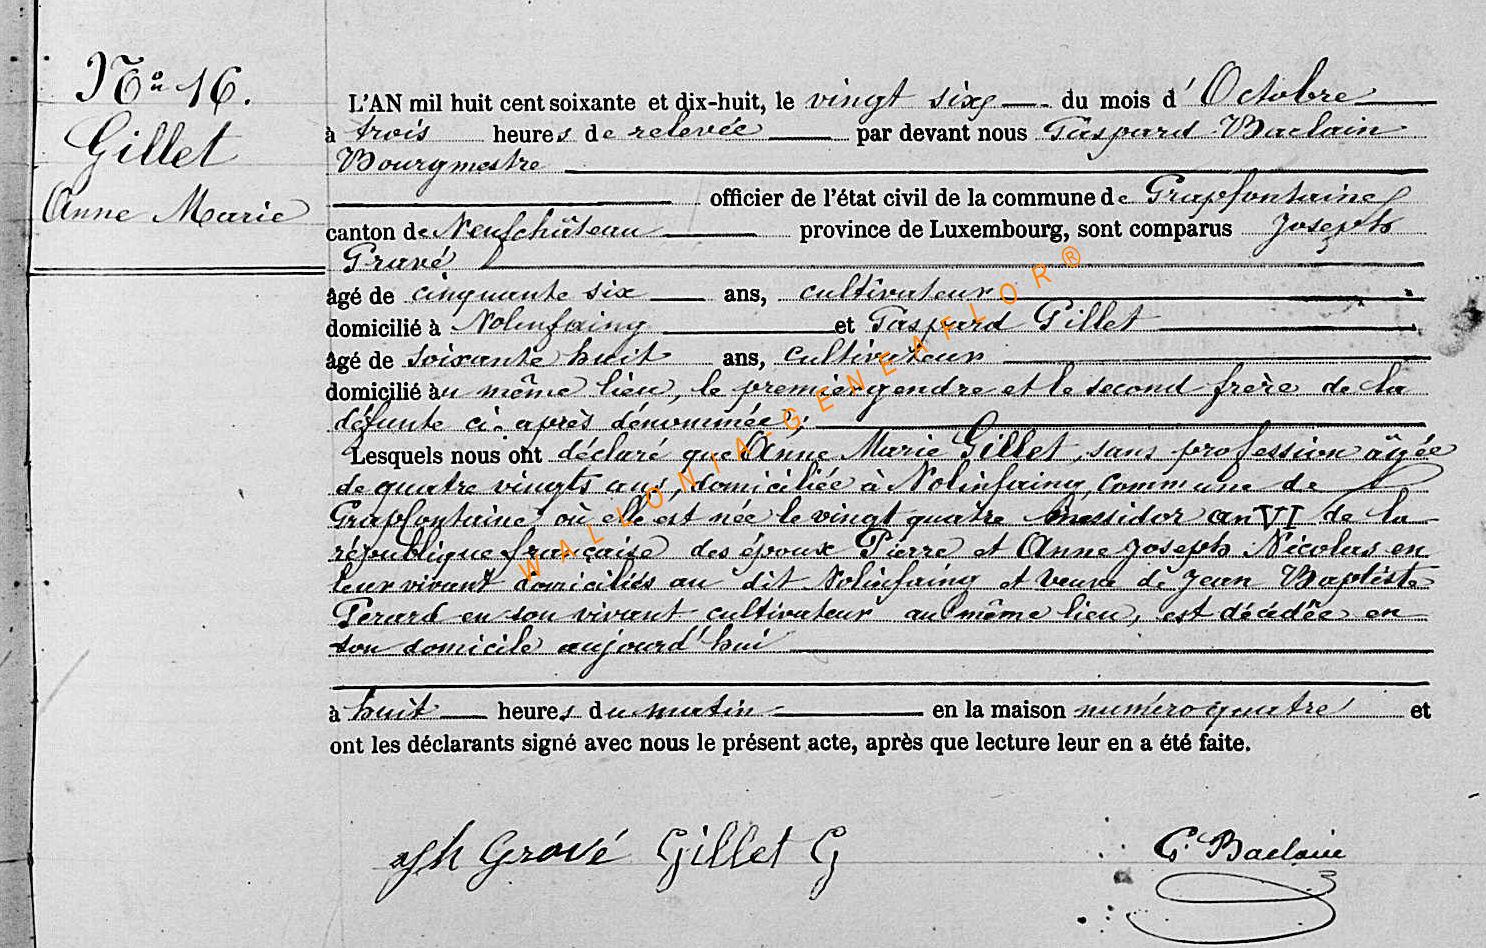 No 16.
Gillet
Anne Marie
L'AN mil huit cent soixante et dix-huit, le vingt six du mois d'Octobre
à trois heures de relevée par devant nous Gaspard Baclain
Bourgmestre
officier de l'état civil de la commune de Grapfontaine
canton de Neufchâteau province de Luxembourg, sont comparus Joseph
Gravé
âgé de cinquante six ans, cultivateur
domicilié à Nolinfaing et Gaspard Gillet
âgé de soixante huit ans, cultivateur
domicilié au même lieu, le premier gendre et le second frère de la
défunte ci-après dénommée;
Lesquels nous ont déclaré que Anne Marie Gillet, sans profession âgée
de quatre vingts ans, domiciliée à Nolinfaing, Commune de
Grapfontaine, où elle est née le vingt quatre messidor an VI de la
république française des époux Pierre et Anne Joseph Nicolas en
leur vivant domiciliés au dit Nolinfaing et veuve de Jean Baptiste
Perard en son vivant cultivateur au même lieu, est décédée en
son domicile aujourd'hui
à huit heures du matin en la maison numéro quatre et
ont les déclarants signé avec nous le présent acte, après que lecture leur en a été faite.
Gravé Gillet G
G. Baclain
WALLONIA-GENEAFLOR®